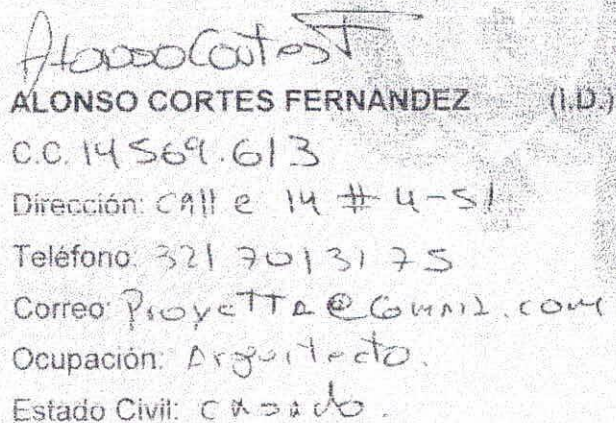 Alonso Cortes F
ALONSO CORTES FERNANDEZ (I.D.)
C.C. 14569.613
Dirección: Calle 14 # 4-51
Teléfono: 321 7013175
Correo: ProyeTTA@Gmail.com
Ocupación: Arquitecto.
Estado Civil: casado.